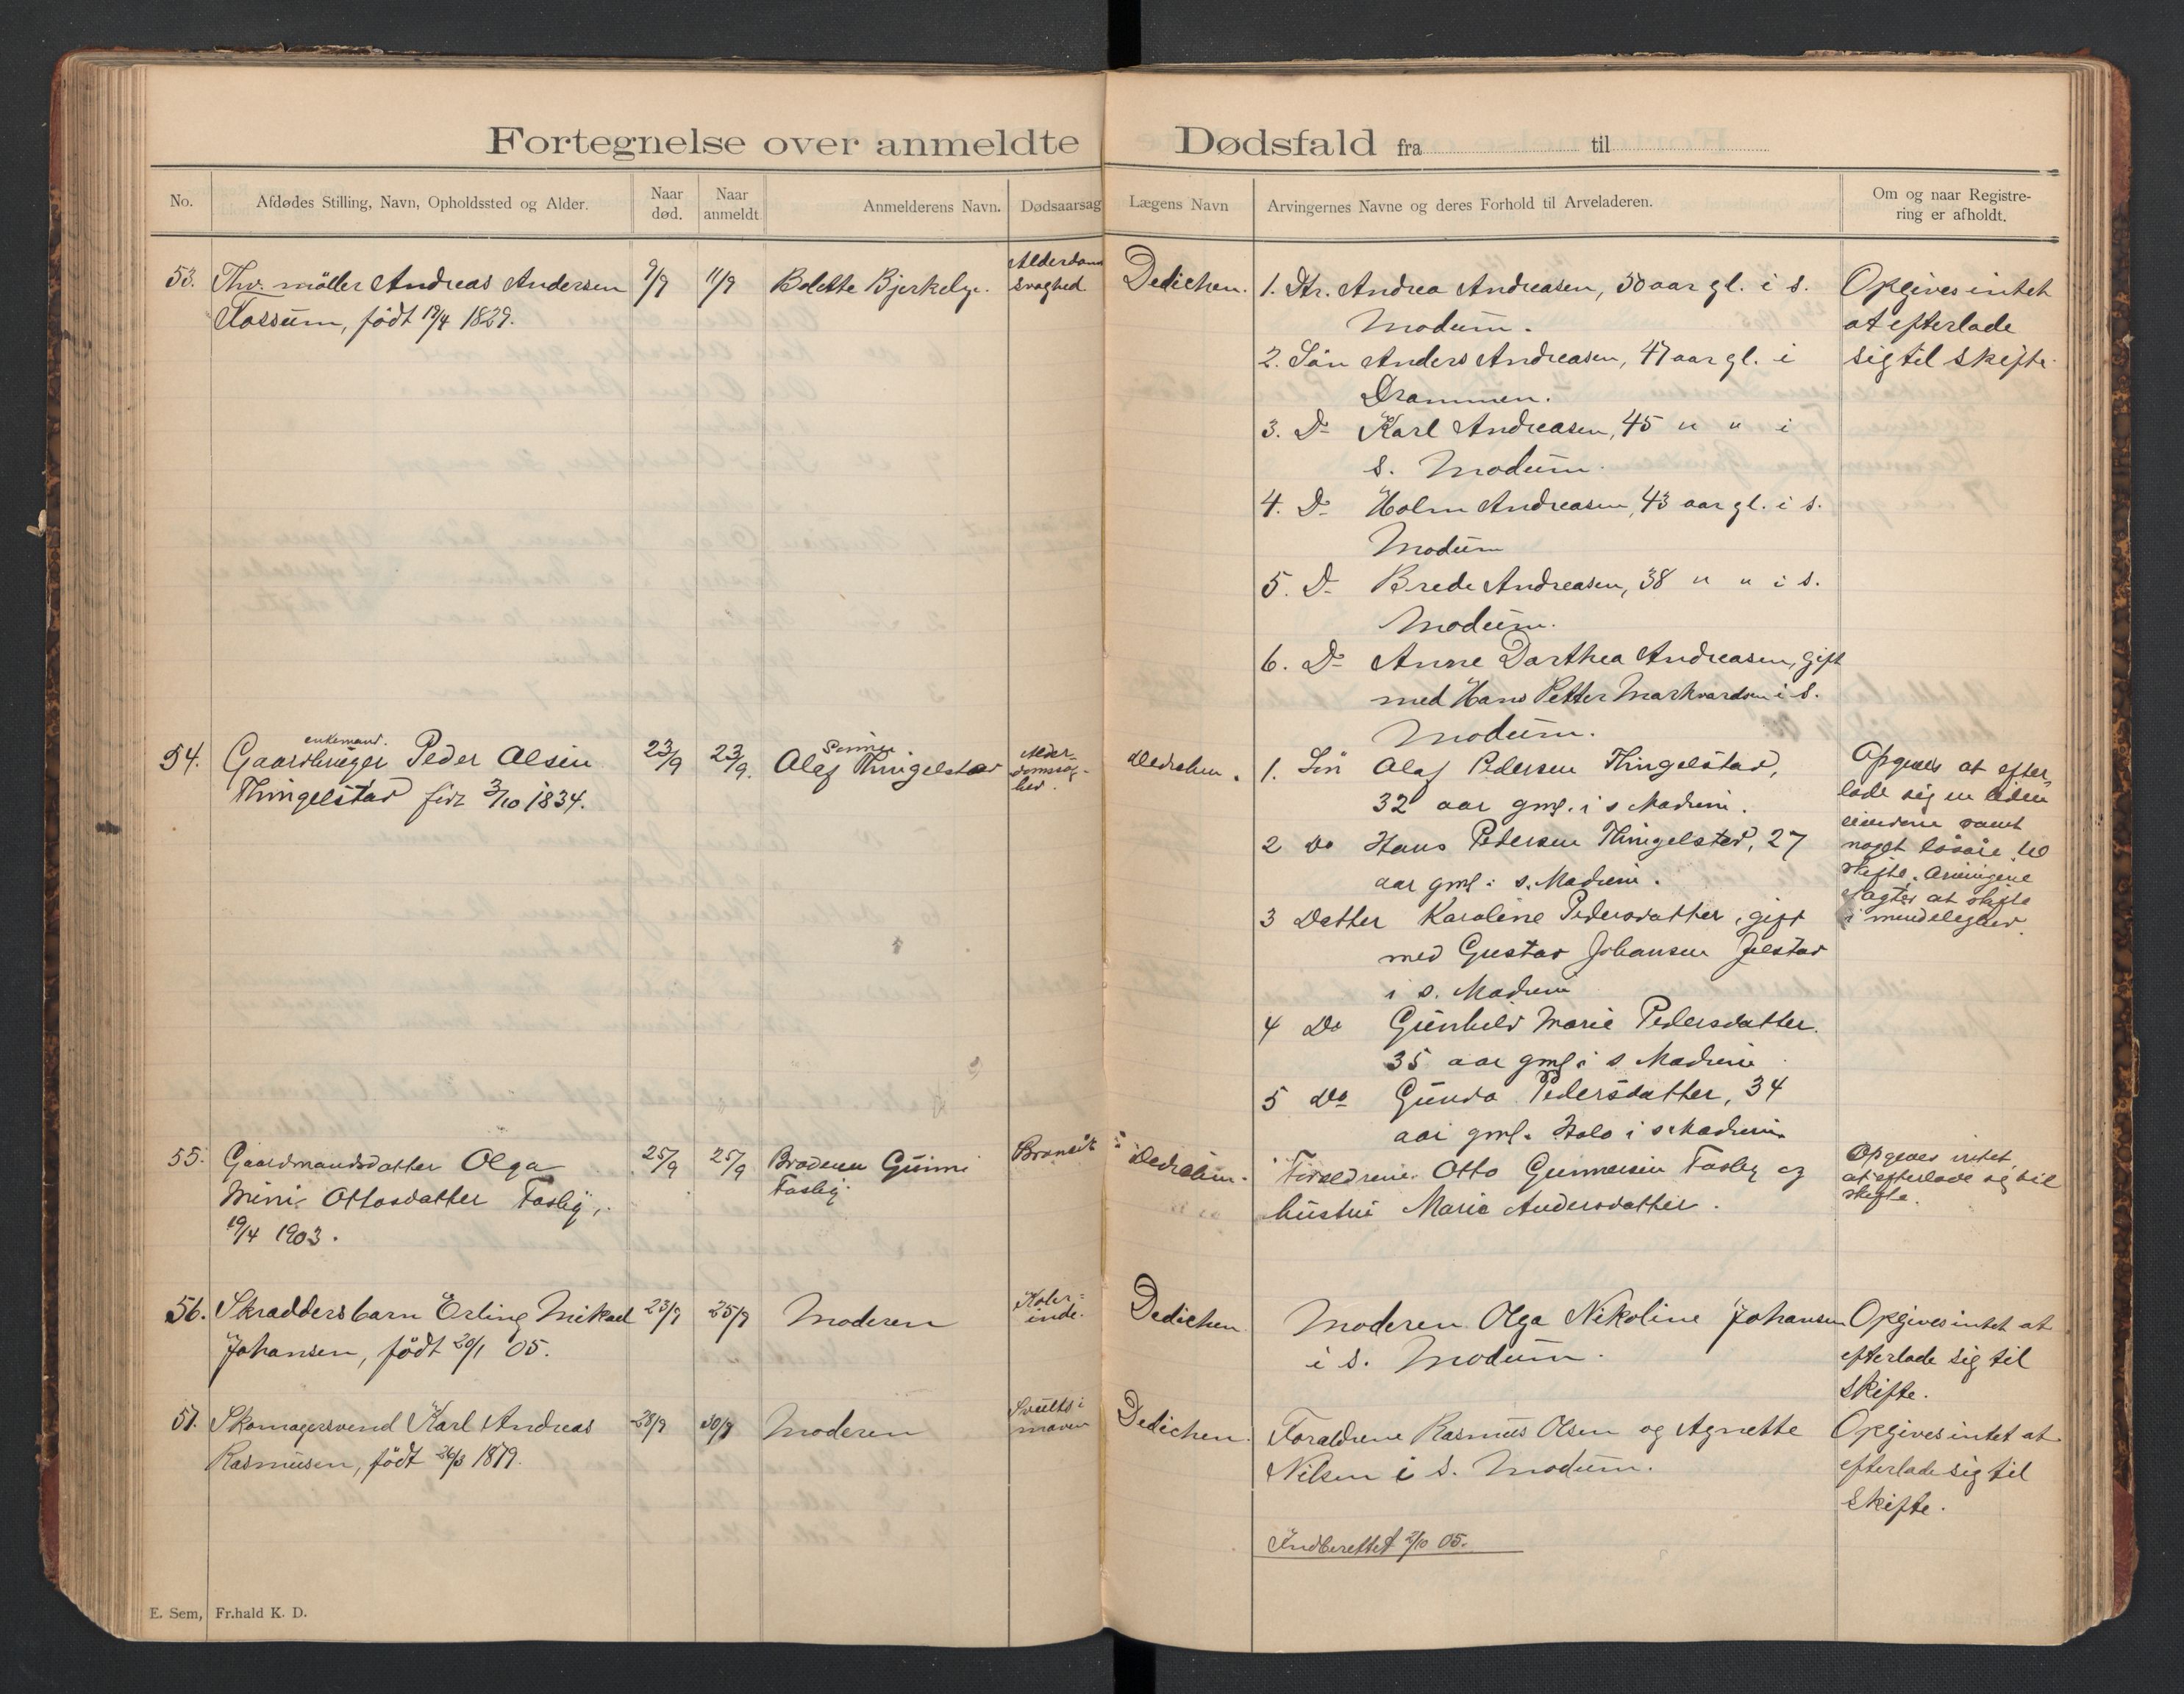 Fortegnelse over anmeldte Dødsfald fra til
No. Afdødes Stilling, Navn, Opholdssted og Alder. Naar død. Naar anmeldt Anmelderens Navn. Dødsaarsag Lægens Navn Arvingernes Navne og deres Forhold til Arveladeren. Om og naar Registrering er afholdt.
53. Andreas Andersen
Fossum, födt 1829.
9/9
11/9
Bolette
Alderdoms
svaghed
Dedichen.
1. Dtr. Andrea Andreasen, 50 aar gl. i s.
Modum.
2. Sön Anders Andreasen, 47 aar gl. i
Drammen.
3. Do Karl Andreasen, 45 " " i
s. Modum.
4. Do Holm Andreasen, 43 aar gl. i s.
Modum
5. Do Brede Andreasen, 38 " " i s.
Modum.
6. Do Anne Dorthea Andreasen, gift
med Hans Petter Markvardsen i s.
Modum.
Opgives intet
at efterlade
sig til skifte.
54. Gaardbruger enkemand. Peder Olsen
Thingelstad född 3/10 1834.
23/9
23/9.
Sönnen
Olaf Thingelstad
Alder-
domssvag-
hed.
Dedichen.
1. Sön Olaf Pedersen Thingelstad,
32 aar gml. i s Modum.
2 Do Hans Pedersen Thingelstad, 27
aar gml i s. Modum.
3 Datter Karoline Pedersdatter, gift
med Gustav Johansen
i s. Modum
4 Do Gunhild Marie Pedersdatter.
35 aar gml i s Modum
5 Do Gunda Pedersdatter, 34
aar gml. i s Modum
Opgives at efter-
lade sig en liden
eiendom samt
noget løsøre til
skifte. Arvingerne
agter at skifte
i mindelighed.
55. Gaardmandsdatter Olga
Ottosdatter Fosby,
19/4 1903.
25/9
25/9
Broderen
Fosby.
Dedichen.
Forældrene Otto Gunnersen Fosby og
hustru Marie Andersdatter.
Opgives intet
at efterlade sig til
skifte.
56. Skraddersbarn Erling Mikael
Johansen, födt 20/1 05.
23/9
25/9
Moderen
Koler-
inde.
Dedichen
Moderen Olga Nikoline Johansen
i s. Modum.
Opgives intet at
efterlade sig til
skifte.
57. Skomagersvend Karl Andreas
Rasmusen, födt 26/3 1879.
28/9
30/9
Moderen
Svulst i
maven
Dedichen.
Foraldrene Rasmus Olsen og Agnette
Nilsen i s. Modum.
Opgives intet at
efterlade sig til
skifte.
Indberettet 2/10 05.
E. Sem, Fr.hald K. D.